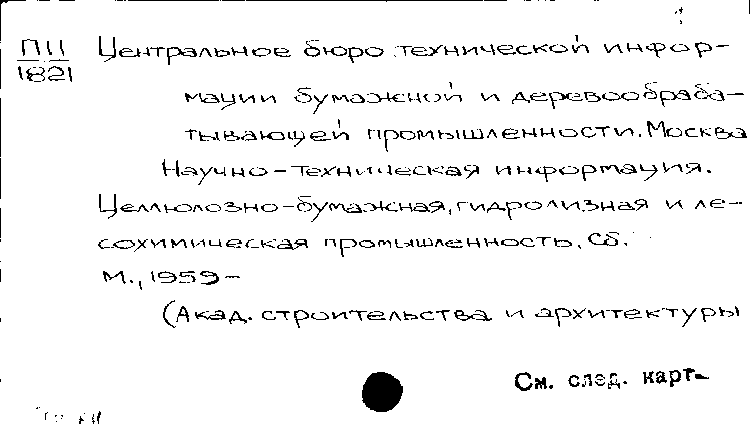 П11 Центральное бюро технической инфор-
1821
мации бумажной и деревообраба-
тывающей промышленности. Москва
Научно-техническая информация.
Целлюлозно-бумажная, гидролизная и ле-
сохимическая промышленность. Сб.
М., 1959-
(Акад. строительства и архитектуры
См. след. карт-